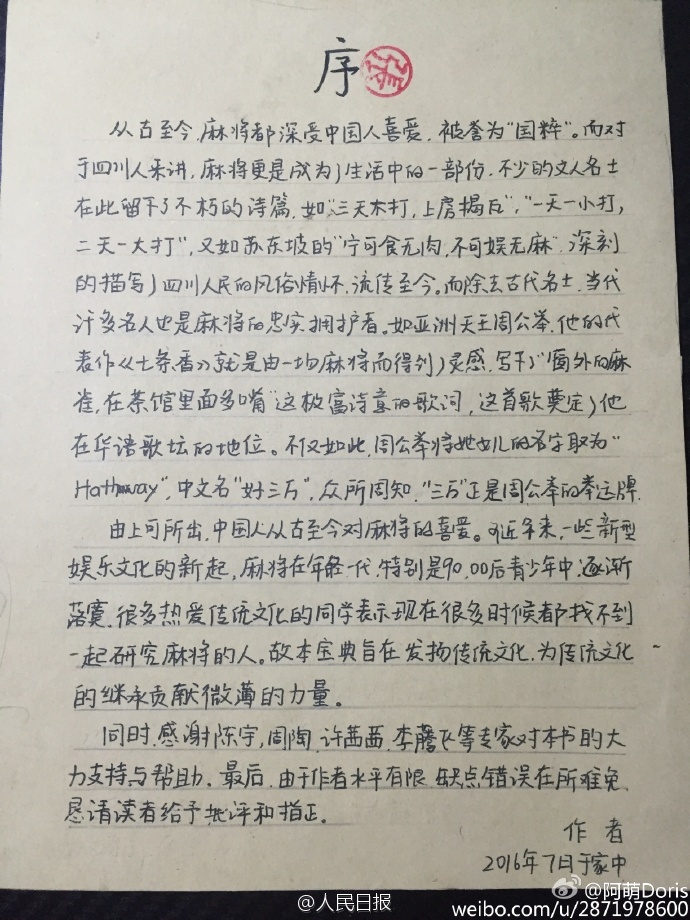 序
从古至今,麻将都深受中国人喜爱,被誉为"国粹"。而对
于四川人来讲,麻将更是成为了生活中的一部份,不少的文人名士
在此留下了不朽的诗篇,如"三天不打,上房揭瓦","一天一小打,
二天一大打",又如苏东坡的"宁可食无肉,不可娱无麻",深刻
的描写了四川人民的风俗情怀,流传至今。而除去古代名士,当代
许多名人也是麻将的忠实拥护者。如亚洲天王周公举,他的代
表作《七条香》就是由一场麻将而得到了灵感,写下了"窗外的麻
雀,在茶馆里面多嘴"这极富诗意的歌词,这首歌奠定了他
在华语歌坛的地位。不仅如此,周公举将她女儿的名字取为"
Hathaway",中文名"好三万",众所周知,"三万"正是周公举的幸运牌.
由上可所出,中国人从古至今对麻将的喜爱。可近年来,一些新型
娱乐文化的新起,麻将在年轻一代,特别是90,00后青少年中,逐渐
落寞,很多热爱传统文化的同学表示现在很多时候都找不到
一起研究麻将的人。故本宝典旨在发扬传统文化,为传统文化
的继承贡献微薄的力量。
同时,感谢陈宇,周陶,许茜茜,李腾飞等专家对本书的大
力支持与帮助。最后,由于作者水平有限,缺点错误在所难免,
恳请读者给予批评和指正。
作者
2016年7日于家中
@人民日报
@阿萌Doris
weibo.com/u/2871978600